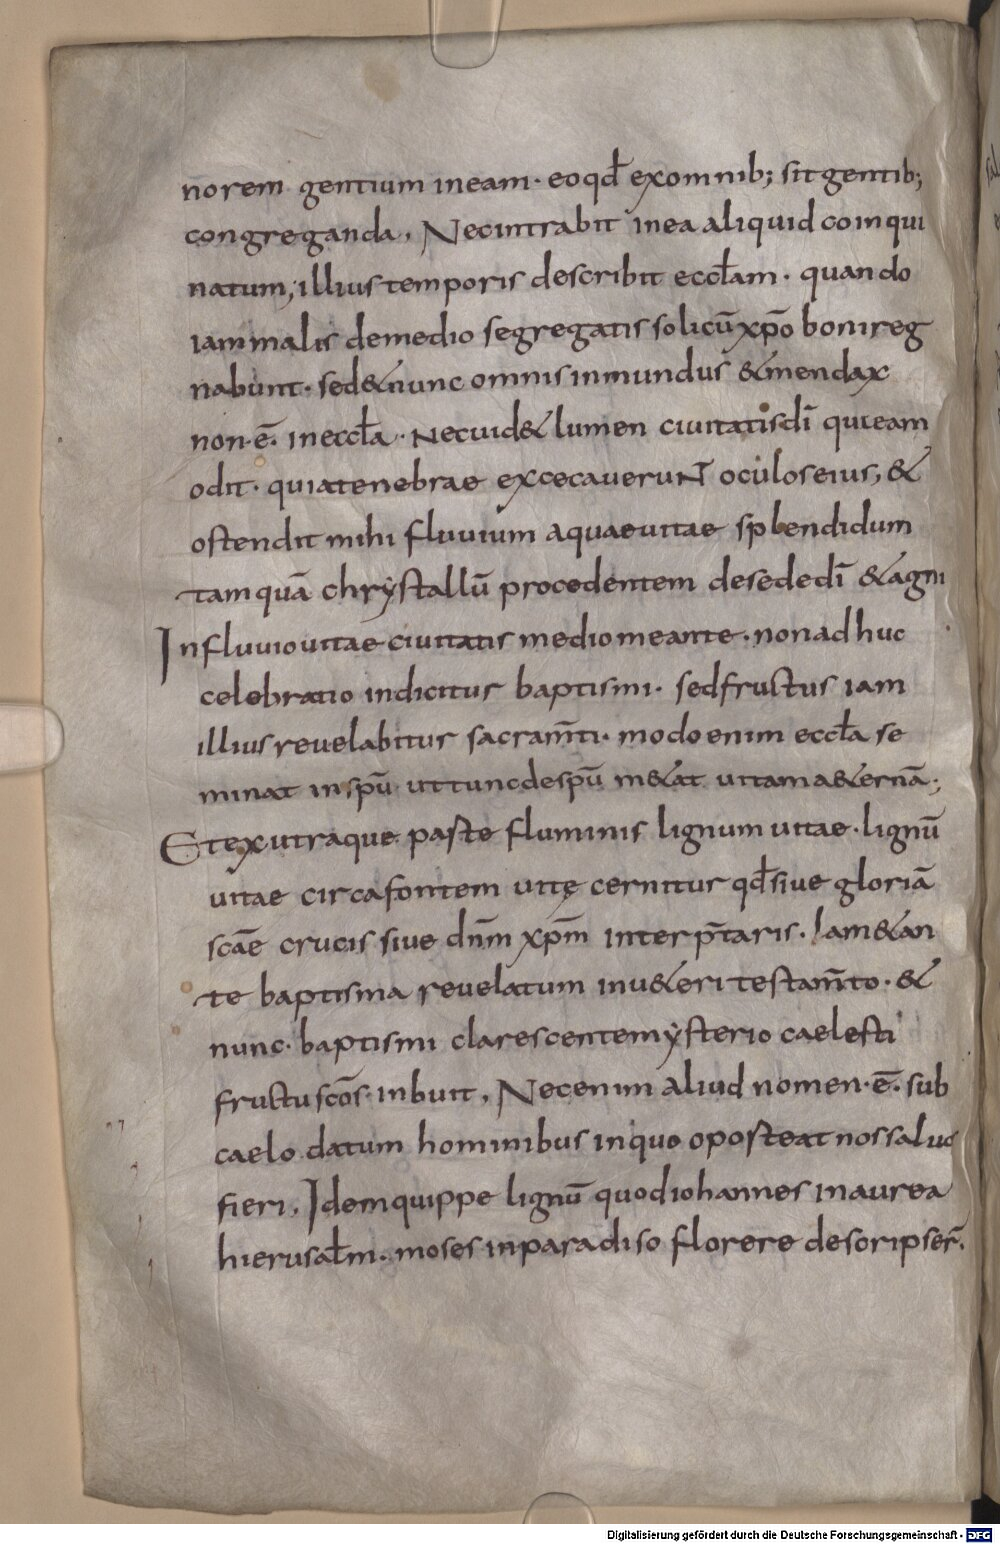 norem gentium ineam· eoqđ exomnib; sitgentib;
congreganda, Necintrabit inea aliquid coinqui
natum, illius temporis describit eccłam· quando
iam malis demedio segregatis solicū xp̄o boni reg
nabunt· sed & nunc omnis inmundus & mendax
non·ē· ineccła· necuid& lumen ciuitatis dī qui eam
odit· quiatenebrae excecauerunt oculos eius, &
ostendit mihi fluuium aquaeuitae splendidum
tamquā chrẏstallū procedentem desede dī & agni
Influuio uitae ciuitatis medio meante· non adhuc
celebratio indicitur baptismi· sed fructus iam
illius reuelabitur sacram̄ti· modo enim eccła se
minat in sp̄u· ut tunc de sp̄u m&at uitam a&ernā;
Et ex utraque parte fluminis lignum uitae· lignū
uitae circa fontem uitę cernitur qđ siue gloriā
scāe crucis siue dn̄m xp̄m interp̄taris. Iam & an
te baptisma reuelatum inu&eri testam̄to· &
nunc· baptismi clarescente mẏsterio caelesti
fructu scōs· inbuit, Nec enim aliud nomen·ē· sub
caelo datum hominibus in quo oporteat nos saluos
fieri, Idem quippe lignū quod iohannes in aurea
hierusałm· moses inparadiso florere descripser̄.
Digitalisierung gefördert durch die Deutsche Forschungsgemeinschaft - DFG